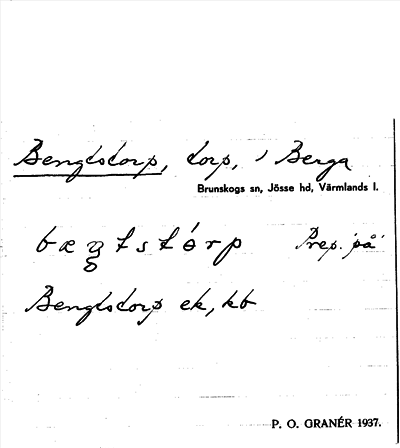 Bengtstorp, torp, i Berga
Brunskogs sn, Jösse hd, Värmlands l.
Prep. 'på'
Bengtstorp ek, kb
P. O. GRANÉR 1937.